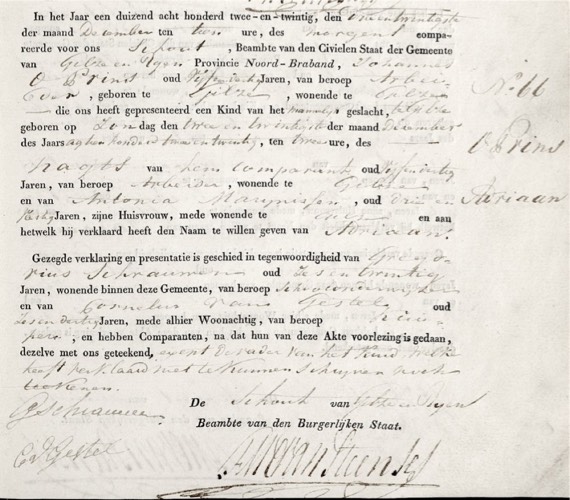 In het Jaar een duizend acht honderd twee-en-twintig, den
der maand December ten tien ure, des morgens compa-
reerde voor ons Schout, Beambte van den Civielen Staat der Gemeente
van Gilze en Ryen Provincie Noord-Braband, Johannes
O Prins oud Jaren, van beroep Arbei-
, geboren te Gilze, wonende te Gilze
— die ons heeft gepresenteerd een Kind van het mannelijk geslacht,
geboren op Zondag den twee en twintigste der maand December
des Jaars agtien honderd twee en twintig, ten twee ure, des
N.o 66
O Prins
Adriaan
nagts van hem comparant oud
Jaren, van beroep Arbeider, wonende te Gilze
en van Antonia Marijnissen, oud drie en
dertig Jaren, zijne Huisvrouw, mede wonende te en aan
hetwelk hij verklaard heeft den Naam te willen geven van Adriaan.
Gezegde verklaring en presentatie is geschied in tegenwoordigheid van Grego-
rius Schrauwen oud Zes en twintig
Jaren, wonende binnen deze Gemeente, van beroep
en van Cornelis van Gestel oud
Zes en dertig Jaren, mede alhier Woonachtig, van beroep
, en hebben Comparanten, na dat hun van deze Akte voorlezing is gedaan,
dezelve met ons geteekend, de vader van het Kind welke
heeft verklaard niet te kunnen schrijven noch
teekenen.
De Schout van Gilze en Ryen
Beambte van den Burgerlijken Staat.
G Schrauwen
C v Gestel